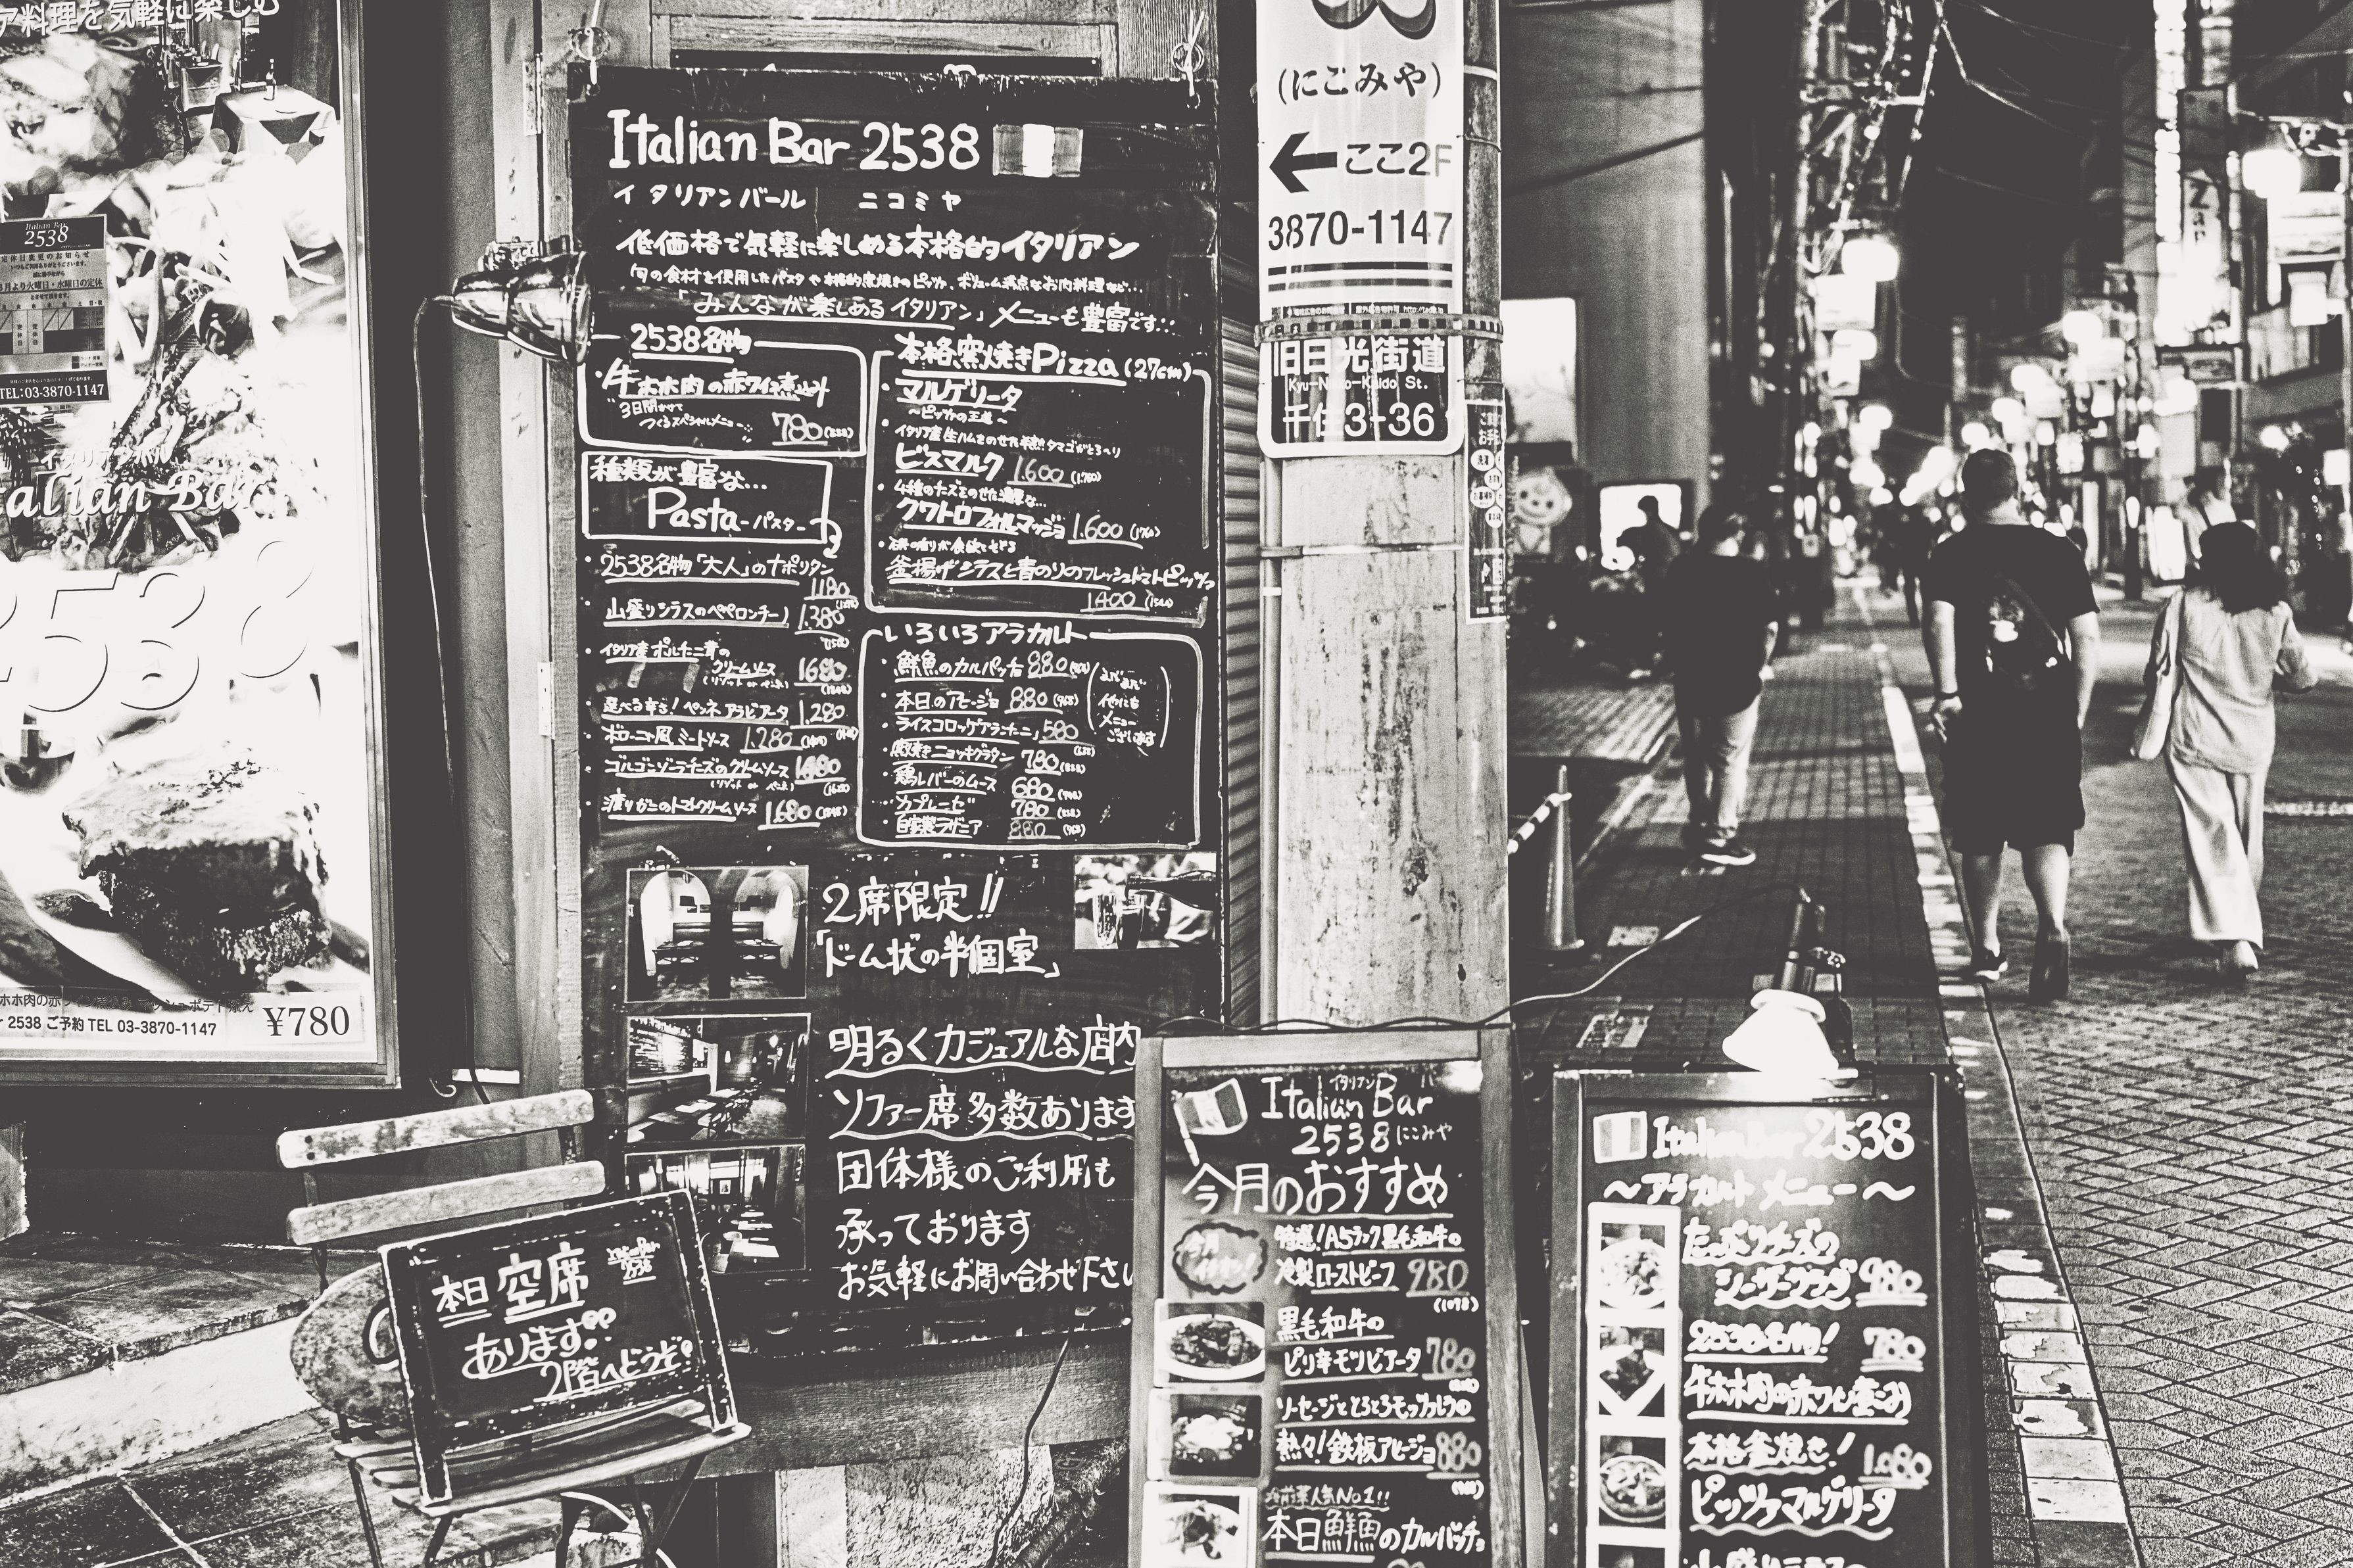 ア料理を気軽に楽しむ
Italian Bar
2538
定休日変更のお知らせ
月より火曜日・水曜日の定休
TEL:03-3870-1147
イタリアンバル
talian Bar
2538
ホホ肉の赤ワイン煮込み
2538 ご予約 TEL 03-3870-1147
¥780
Italian Bar 2538
イタリアンバール ニコミヤ
低価格で気軽に楽しめる本格的イタリアン
旬の食材を使用したパスタや本格的窯焼きのピッツァ、ボリューム満点なお肉料理など...
「みんなが楽しめるイタリアン」メニューも豊富です...
2538名物
・牛ホホ肉の赤ワイン煮込み
3日間かけて
つくるスペシャルメニュー
780(858)
種類が豊富な...
Pasta-パスター
・2538名物「大人」のナポリタン
1180
・山盛りシラスのペペロンチーノ 1.380
・イタリア産ポルチーニ茸の
クリームソース 1680
(リゾット or ペンネ)
・選べる辛さ!ペンネアラビアータ 1.280
・ボローニャ風ミートソース 1.280
・ゴルゴンゾーラチーズのクリームソース 1480
(リゾット or ペンネ)
・渡りガニのトマトクリームソース 1.680
本格窯焼きPizza(27cm)
・マルゲリータ
～ピッツァの王道～
・イタリア産生ハムをのせた半熟タマゴがとろ～り
ビスマルク 1.600 (1.760)
・4種のチーズをのせた濃厚な...
クワトロフォルマッジョ 1.600 (1760)
釜揚げシラスと青のりのフレッシュトマトピッツァ
1400 (1540)
いろいろアラカルト
・鮮魚のカルパッチョ 880
・本日のアヒージョ 880 (968)
・ライスコロッケアランチーニ 580
(638)
・窯焼きニョッキグラタン 780(858)
・鶏レバーのムース 680
・カプレーゼ 780
・自家製ラザニア 880 (968)
まだまだ
他にも
メニュー
ございます
2席限定!!
「ドーム状の半個室」
明るくカジュアルな店内
ソファー席多数あります
団体様のご利用も
承っております
お気軽にお問い合わせ下さい
本日空席
あります!!
2階へどうぞ!
(にこみや)
←ここ2F
3870-1147
旧日光街道
Kyu-Nikko-Kaido St.
千住3-36
イタリアン
Italian Bar
2538 にこみや
今月のおすすめ
今月
イチオシ!
特選!A5ランク黒毛和牛の
冷製ローストビーフ 980
(1078)
黒毛和牛の
ピリ辛モツビアータ 780
ソーセージととろとろモッツァレラの
熱々!鉄板アヒージョ 880
人気No1!!
本日鮮魚のカルパッチョ
Italian Bar 2538
～アラカルトメニュー～
たっぷりチーズの
シーザーサラダ 980
2538名物! 780
牛ホホ肉の赤ワイン煮こみ
本格釜焼き! 1.080
ピッツァマルゲリータ